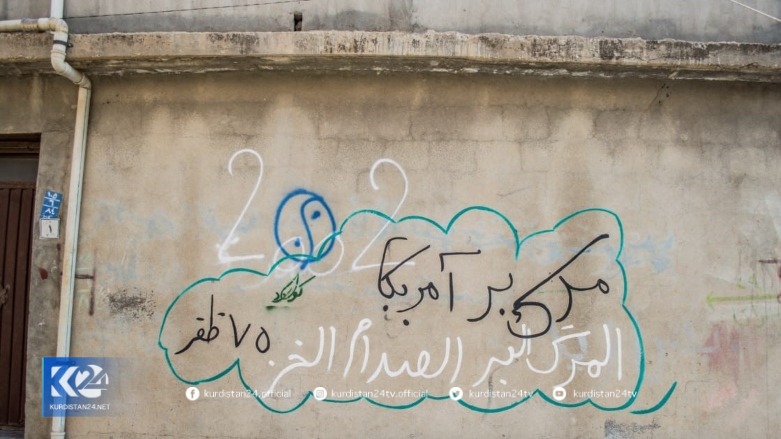 مرگ بر آمریکا
المرگ البر الصدام الخز
٧٥ ظفر
١
K24
KURDISTAN24.NET
kurdistan24.official kurdistan24tv.official kurdistan24tv kurdistan24.official